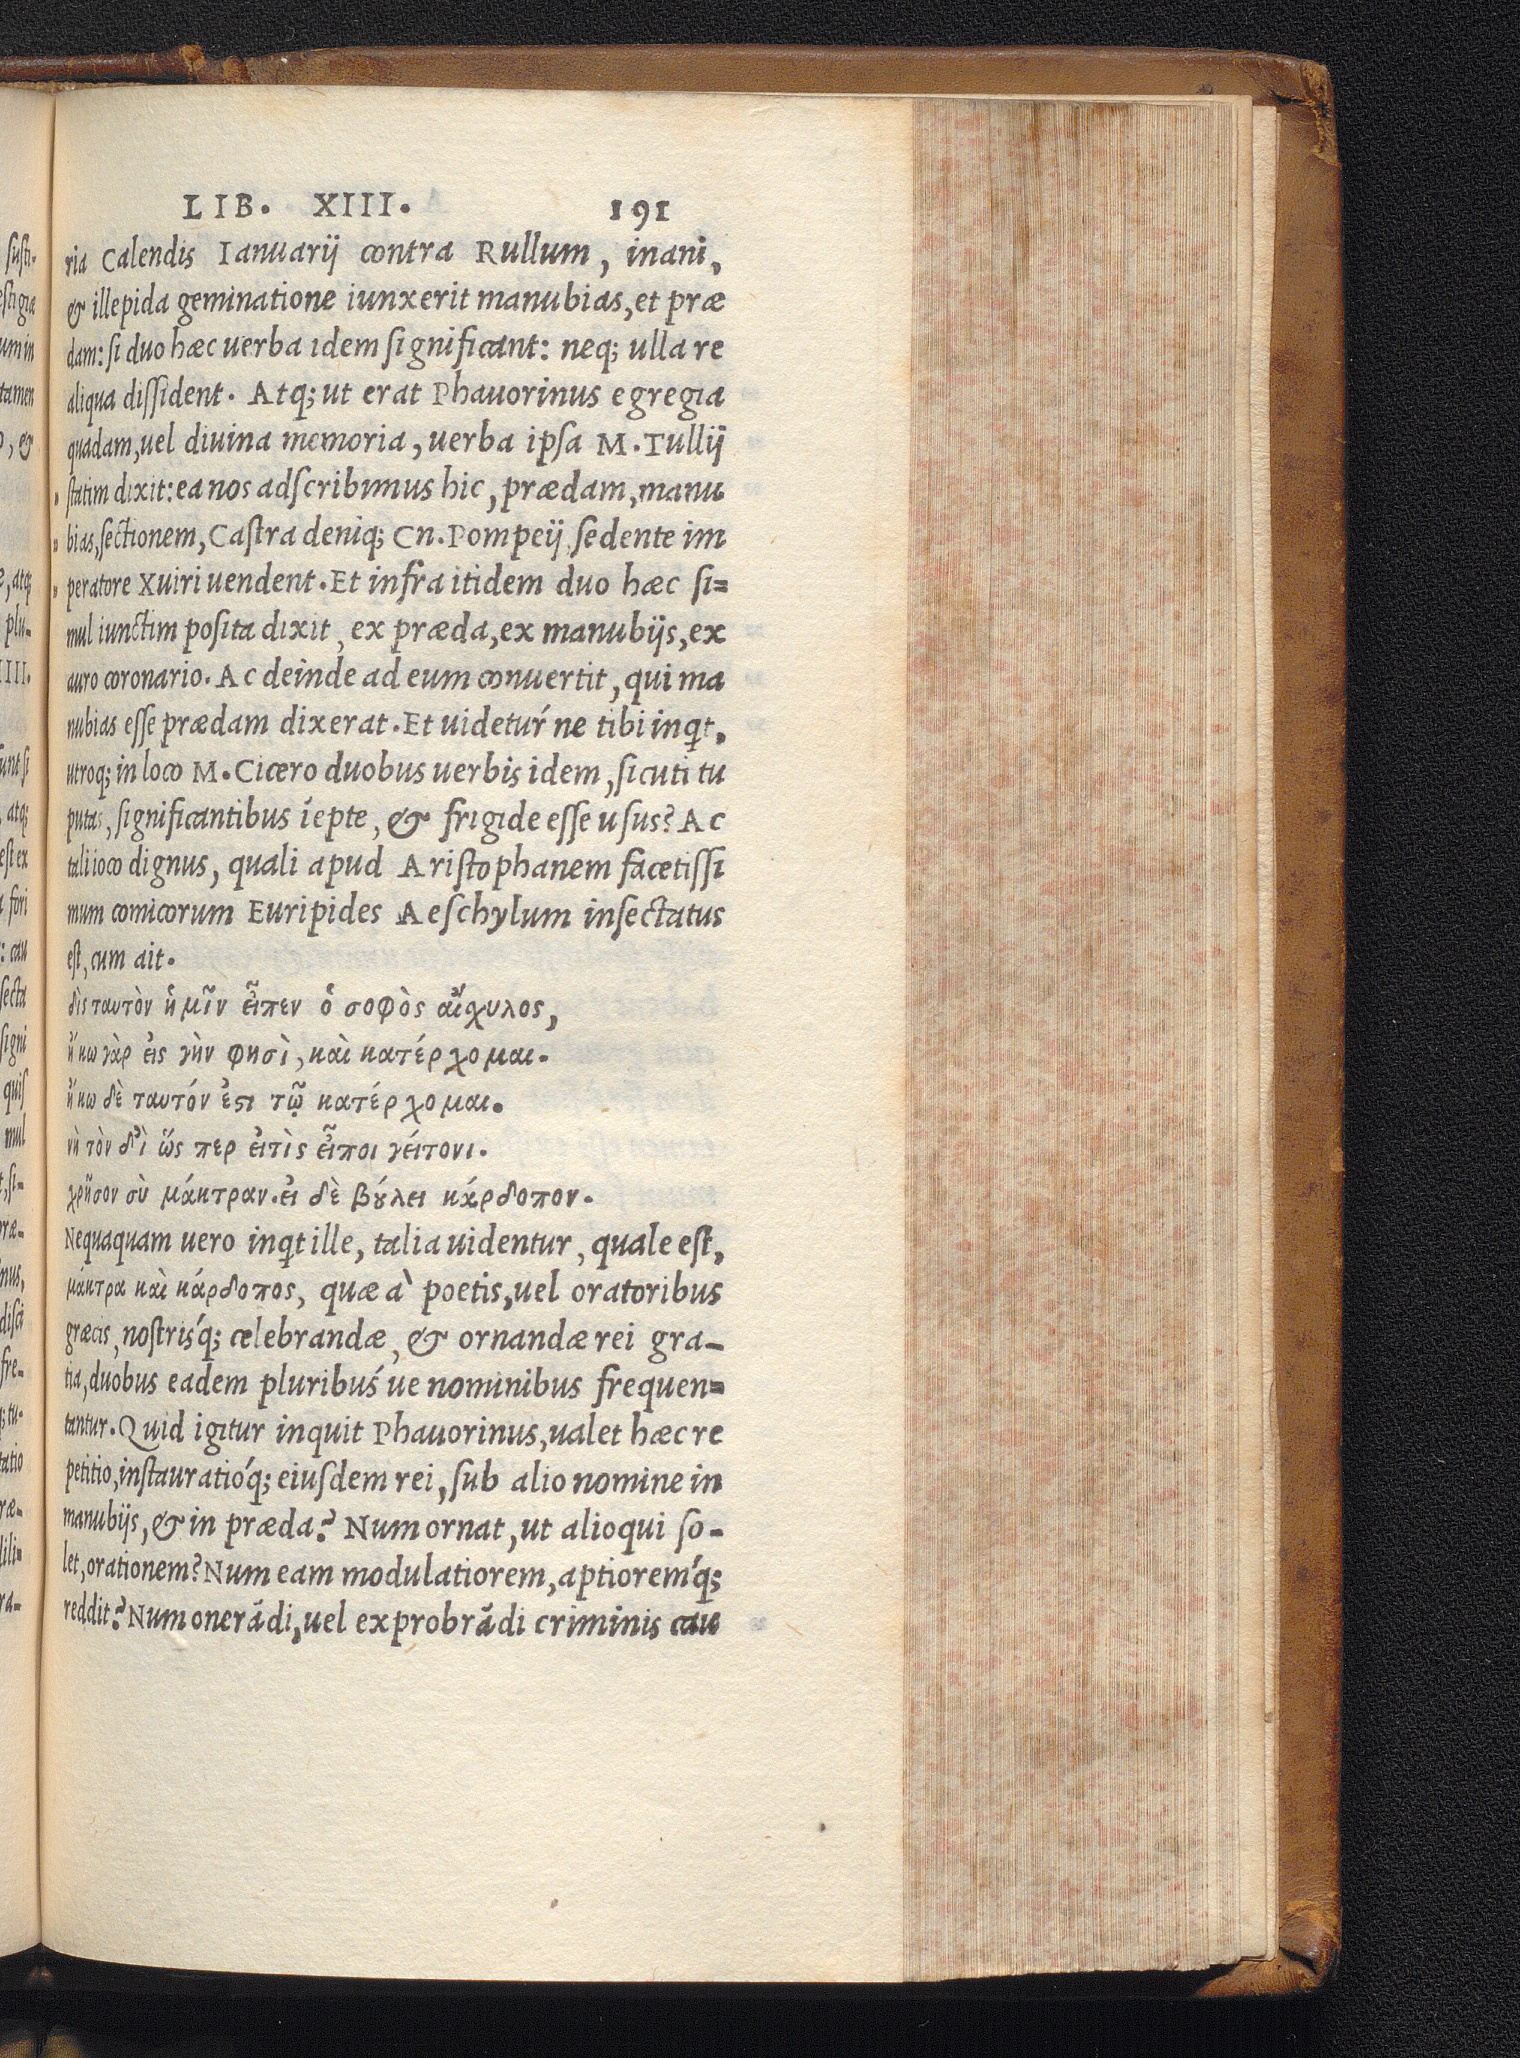 LIB. XIII. 191
ria Calendis Ianuarij contra Rullum, inani,
& illepida geminatione iunxerit manubias, et præ
dam: si duo hæc uerba idem significant: neq; ulla re
aliqua dissident. Atq; ut erat Phauorinus egregia
quadam, uel diuina memoria, uerba ipsa M. Tullij
statim dixit: ea nos adscribimus hic, prædam, manu
bias, sectionem, Castra deniq; Cn. Pompeij sedente im
peratore Xuiri uendent. Et infra itidem duo hæc si=
mul iunctim posita dixit, ex præda, ex manubijs, ex
auro coronario. Ac deinde ad eum conuertit, qui ma
nubias esse prædam dixerat. Et uidetur´ne tibi inqt,
utroq; in loco M. Cicero duobus uerbis idem, sicuti tu
putas, significantibus īepte, & frigide esse usus? Ac
tali ioco dignus, quali apud Aristophanem facetissi
mum comicorum Euripides Aeschylum insectatus
est, cum ait.
δὶς ταυτὸν ἡμῖν εἶπεν ὁ σοφὸς αἴχυλος,
ἥκω γὰρ εἰς γὴν φησὶ, καὶ κατέρχομαι.
ἥκω δὲ ταυτόν ἐστι τῷ κατέρχομαι.
νὴ τὸν δί ὥς περ εἰτὶς εἶποι γείτονι.
χρῆσον σὺ μάκτραν. εἰ δὲ βούλει κάρδοπον.
Nequaquam uero inqt ille, talia uidentur, quale est,
μάκτρα καὶ κάρδοπος, quæ à poetis, uel oratoribus
græcis, nostris´q; celebrandæ, & ornandæ rei gra-
tia, duobus eadem pluribus´ue nominibus frequen=
tantur. Quid igitur inquit Phauorinus, ualet hæc re
petitio, instauratio´q; eiusdem rei, sub alio nomine in
manubijs, & in præda? Num ornat, ut alioqui so-
let, orationem? Num eam modulatiorem, aptiorem´q;
reddit? Num onerādi, uel exprobrādi criminis cau